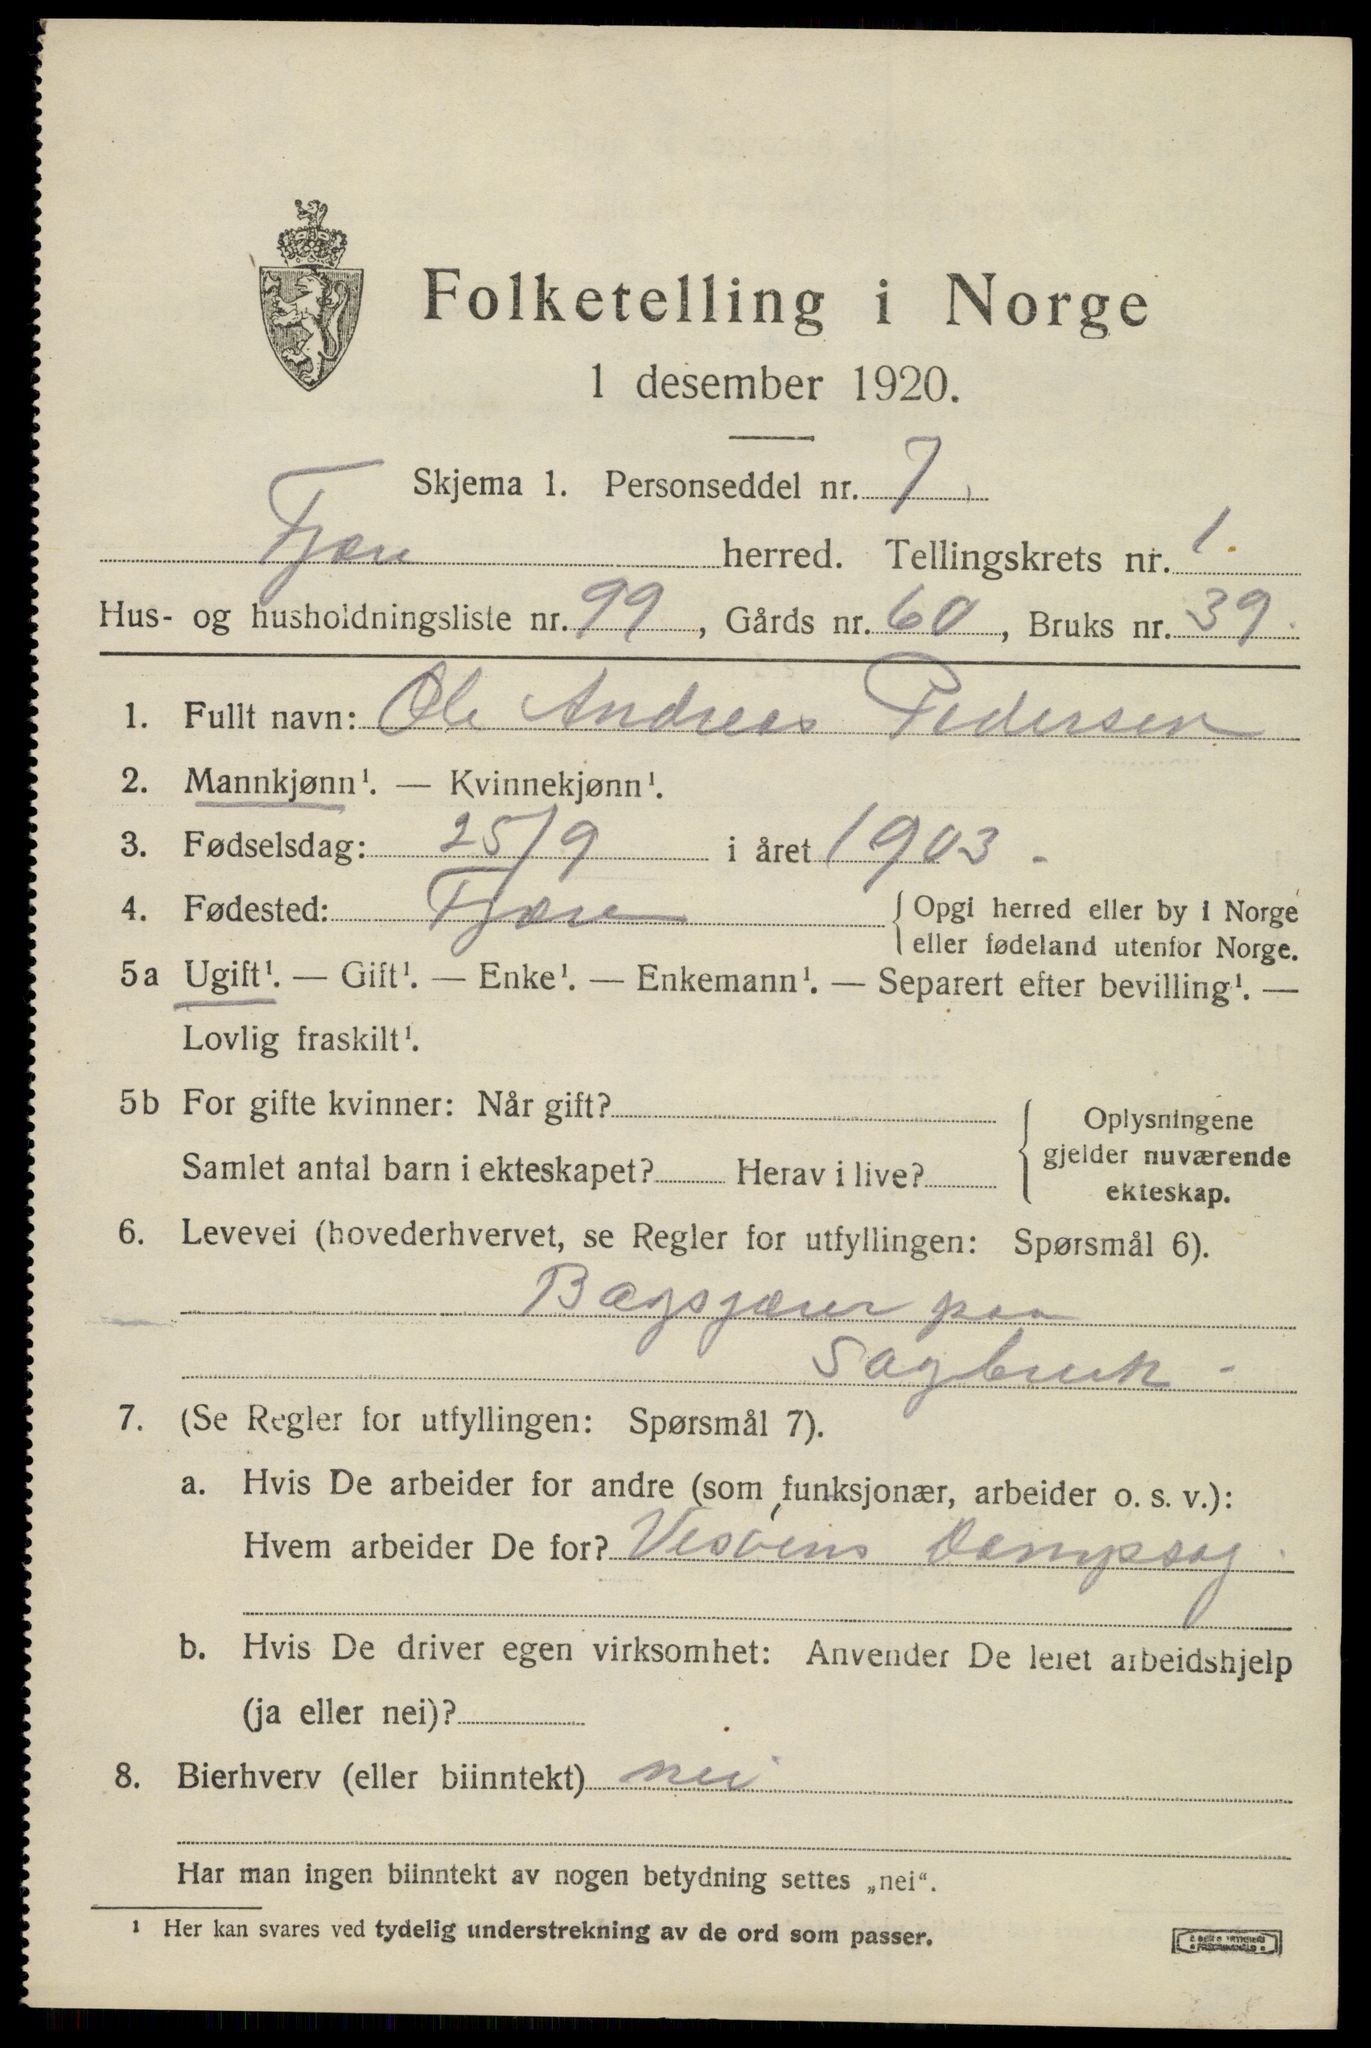 Folketelling i Norge
1 desember 1920.
Skjema 1. Personseddel nr. 7
Fjære herred. Tellingskrets nr. 1.
Hus- og husholdningsliste nr. 99, Gårds nr. 60, Bruks nr. 39.
1. Fullt navn: Ole Andreas Pedersen
2. Mannkjønn¹. — Kvinnekjønn¹.
3. Fødselsdag: 25/9 i året 1903.
4. Fødested: Fjære { Opgi herred eller by i Norge
eller fødeland utenfor Norge.
5a Ugift¹. — Gift¹. — Enke¹. — Enkemann¹. — Separert efter bevilling¹. —
Lovlig fraskilt¹.
5b For gifte kvinner: Når gift?
Samlet antal barn i ekteskapet? Herav i live?
Oplysningene
gjelder nuværende
ekteskap.
6. Levevei (hovederhvervet, se Regler for utfyllingen: Spørsmål 6).
paa
Sagbruk -
7. (Se Regler for utfyllingen: Spørsmål 7).
a. Hvis De arbeider for andre (som funksjonær, arbeider o. s. v.):
Hvem arbeider De for? Vesøens Dampsag.
b. Hvis De driver egen virksomhet: Anvender De leiet arbeidshjelp
(ja eller nei)?
8. Bierhverv (eller biinntekt) nei
Har man ingen biinntekt av nogen betydning settes „nei“.
¹ Her kan svares ved tydelig understrekning av de ord som passer.